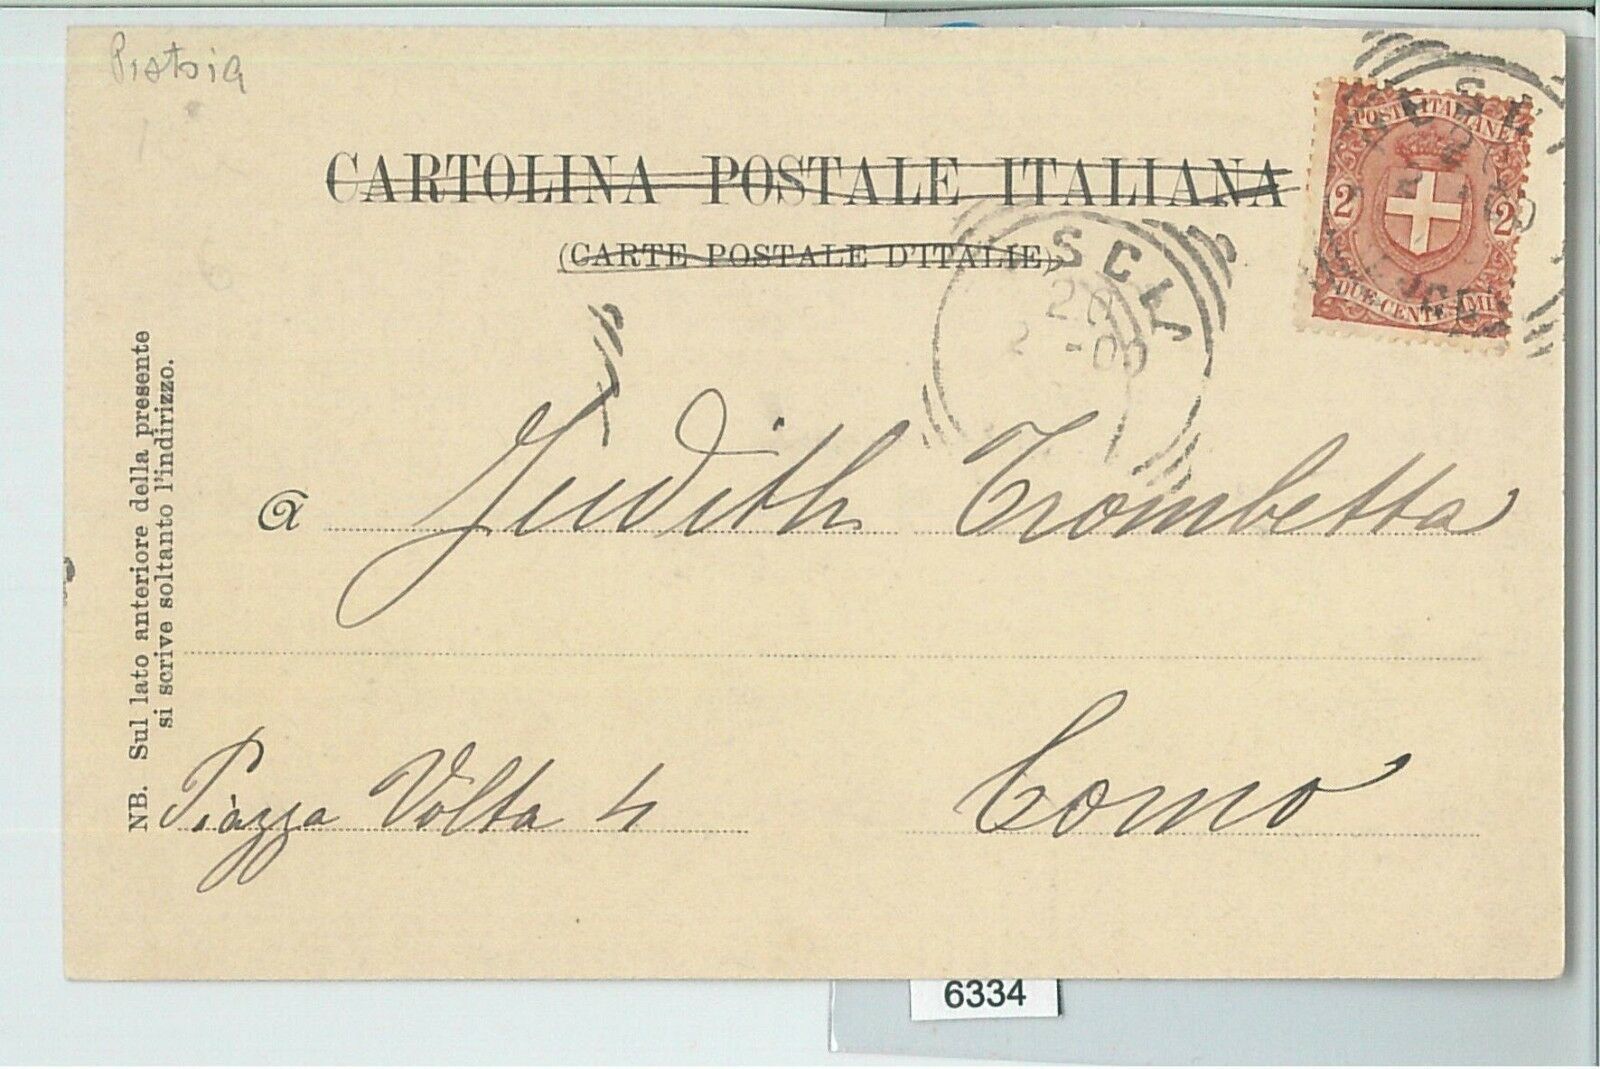 Pistoia
CARTOLINA POSTALE ITALIANA
(CARTE POSTALE D'ITALIE)
POSTE ITALIANE
2 2
DUE CENTESIMI
20
-00
a Judith Trombetta
Piazza Volta 4 Como
NB. Sul lato anteriore della presente
si scrive soltanto l'indirizzo.
6334